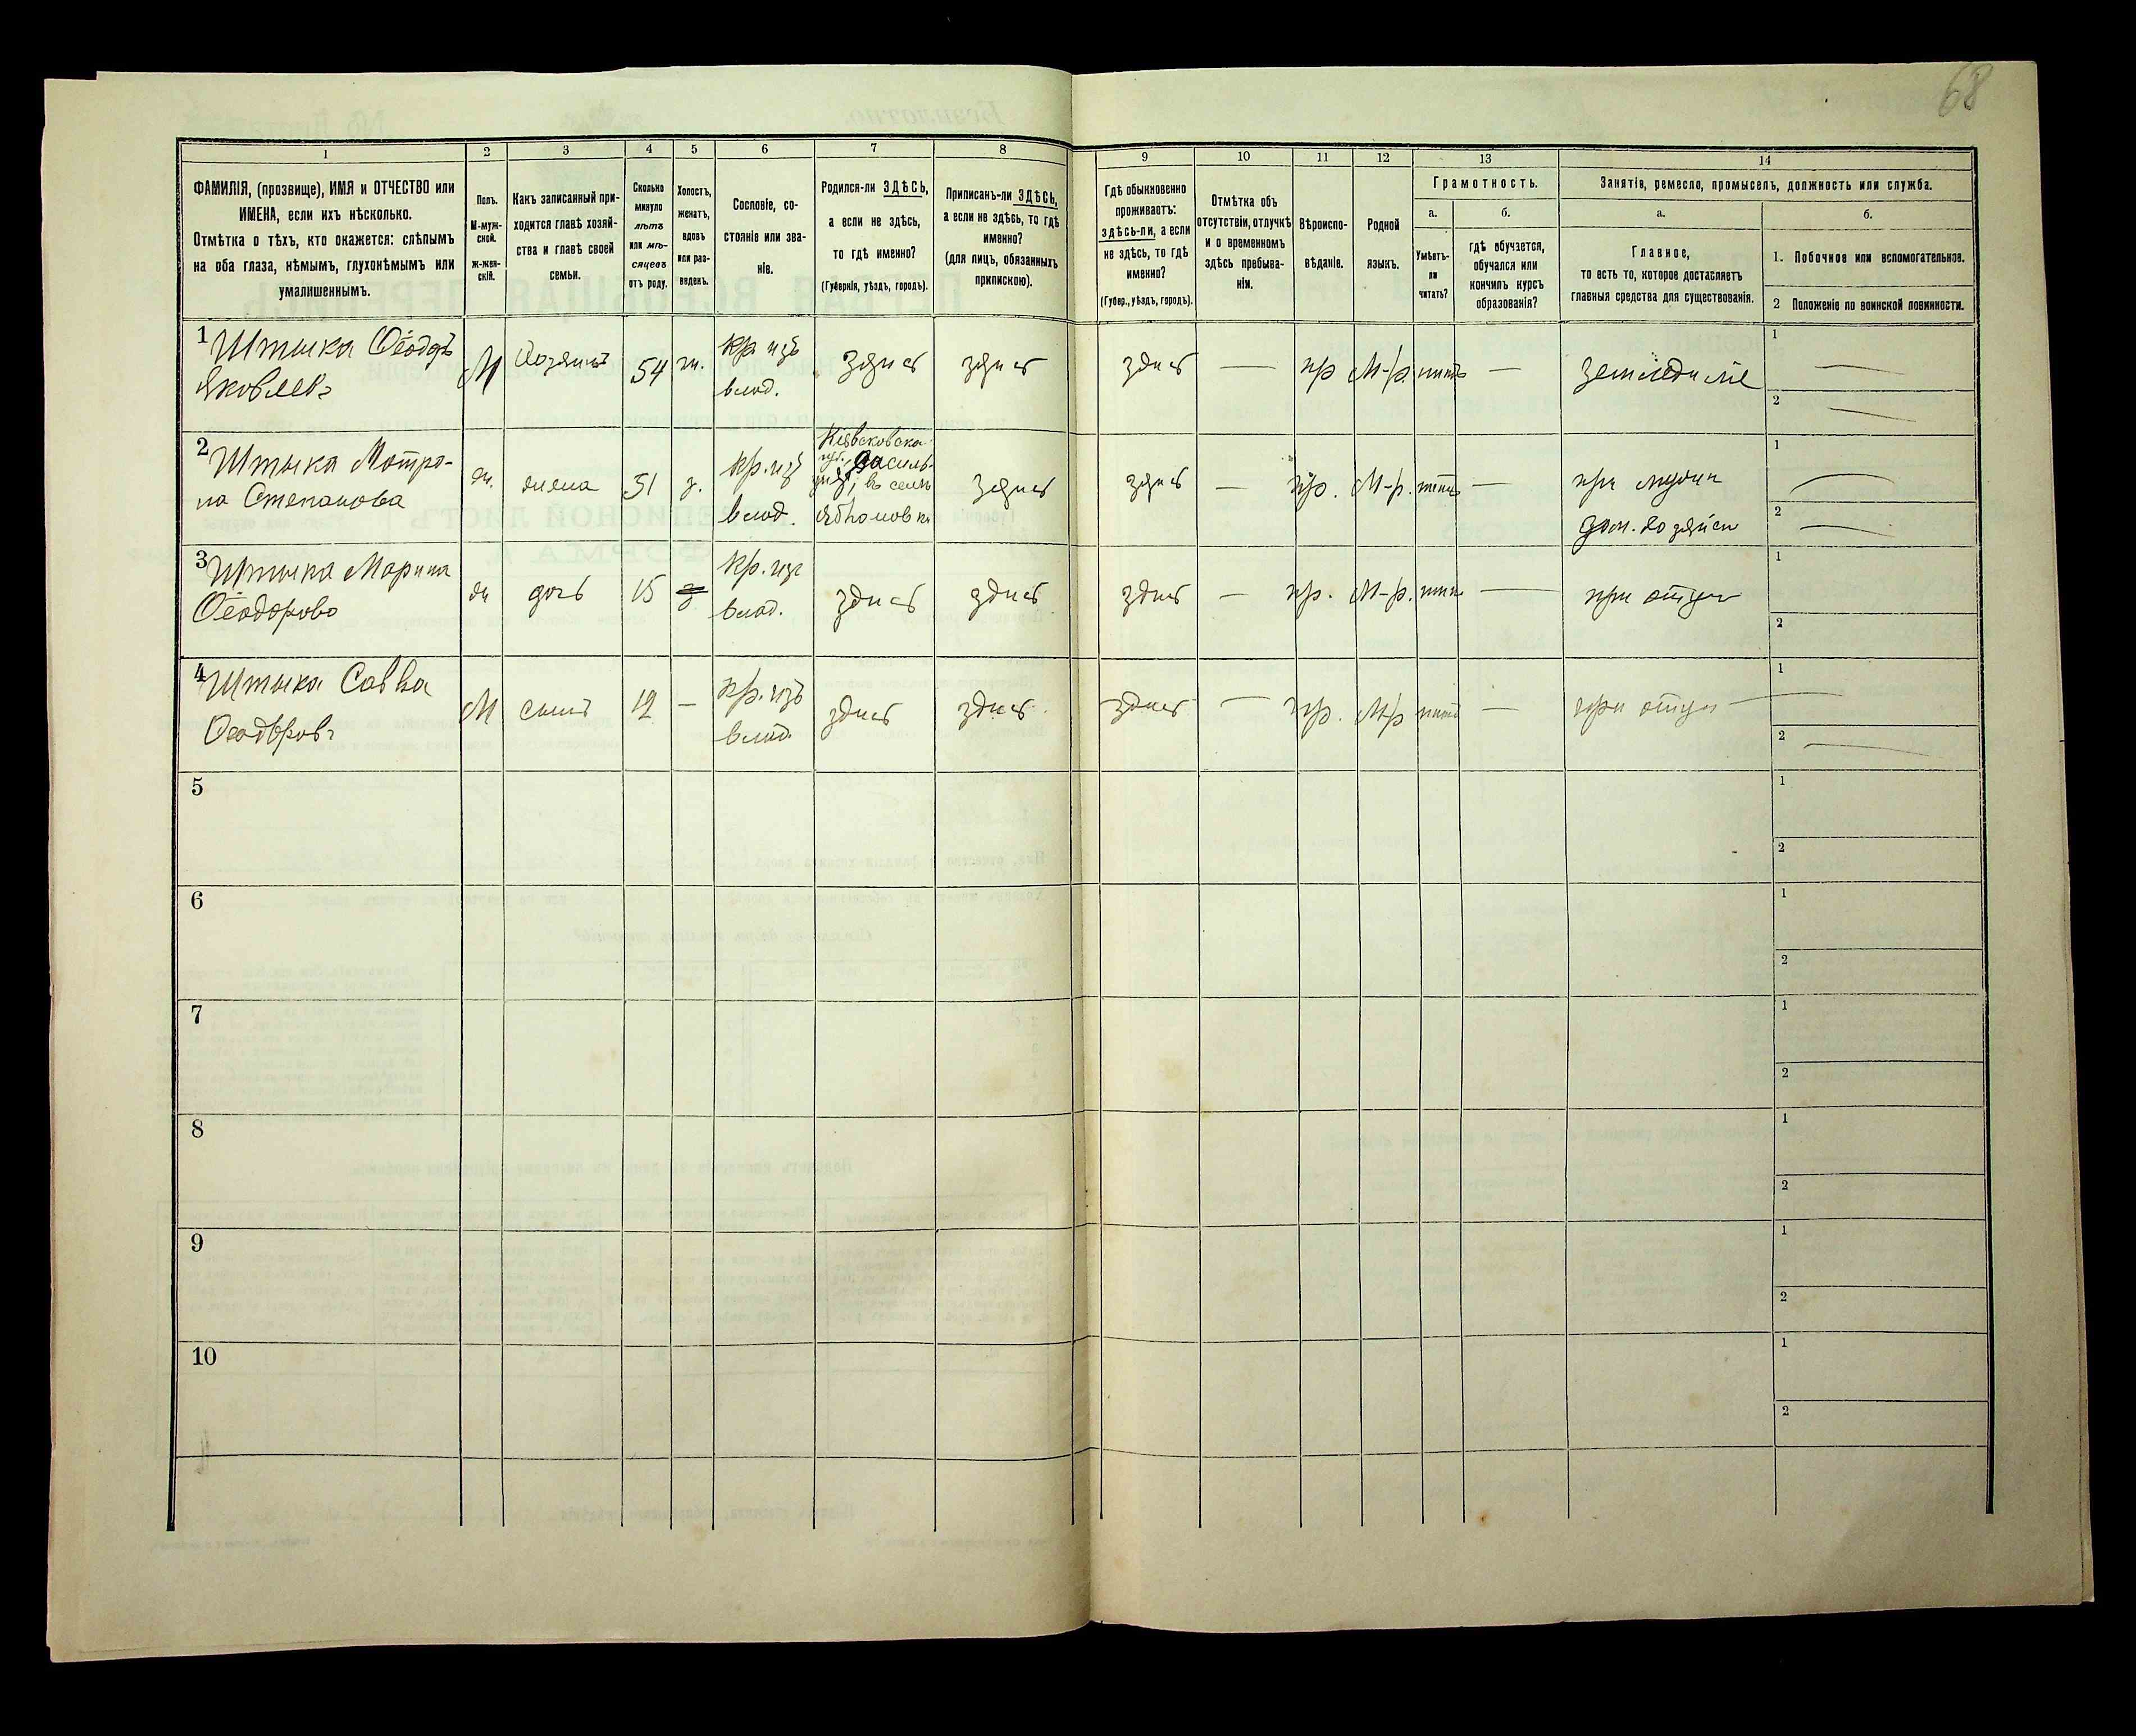 68
1
2
3
4
5
6
7
8
9
10
11
12
13
14
ФАМИЛІЯ, (прозвище), ИМЯ и ОТЧЕСТВО или
ИМЕНА, если ихъ нѣсколько.
Отмѣтка о тѣхъ, кто окажется: слѣпымъ
на оба глаза, нѣмымъ, глухонѣмымъ или
умалишеннымъ.
Полъ.
М-муж-
ской.
Ж-жен-
скій.
Какъ записанный при-
ходится главѣ хозяй-
ства и главѣ своей
семьи.
Сколько
минуло
лѣтъ
или мѣ-
сяцевъ
отъ роду.
Холостъ,
женатъ,
вдовъ
или раз-
веденъ.
Сословіе, со-
стояніе или зва-
ніе.
Родился-ли ЗДѢСЬ,
а если не здѣсь,
то гдѣ именно?
(Губернія, уѣздъ, городъ).
Приписанъ-ли ЗДѢСЬ,
а если не здѣсь, то гдѣ
именно?
(для лицъ, обязанныхъ
припискою).
Гдѣ обыкновенно
проживаетъ:
здѣсь-ли, а если
не здѣсь, то гдѣ
именно?
(Губер., уѣздъ, городъ).
Отмѣтка объ
отсутствіи, отлучкѣ
и о временномъ
здѣсь пребыва-
ніи.
Вѣроиспо-
вѣданіе.
Родной
языкъ.
Грамотность.
а.
б.
Умѣетъ-
ли
читать?
гдѣ обучается,
обучался или
кончилъ курсъ
образованія?
Занятіе, ремесло, промыселъ, должность или служба.
а.
б.
Главное,
то есть то, которое доставляетъ
главныя средства для существованія.
1. Побочное или вспомогательное.
2 Положеніе по воинской повинности.
1 Штыка Ѳеодоръ
Яковлевъ
М
Хозяинъ
54
ж.
кр. изъ
влад.
здѣсь
здѣсь
здѣсь
—
пр
М-р.
—
земледѣліе
1 —
2 —
2 Штыка Мотро-
на Степанова
ж.
жена
51
з.
кр. изъ
влад.
здѣсь
здѣсь
—
пр.
М-р.
—
при мужѣ
дом. хозяйст
1 —
2 —
3 Штыка Марина
Ѳеодорова
ж
дочь
15
кр. изъ
влад.
здѣсь
здѣсь
здѣсь
—
пр.
М-р.
—
при отцѣ
1
2
4 Штыка Савва
Ѳеодоровъ
М
сынъ
12
—
кр. изъ
влад.
здѣсь
здѣсь
здѣсь
—
пр.
М-р
—
при отцѣ
1 —
2 —
5
1
2
6
1
2
7
1
2
8
1
2
9
1
2
10
1
2